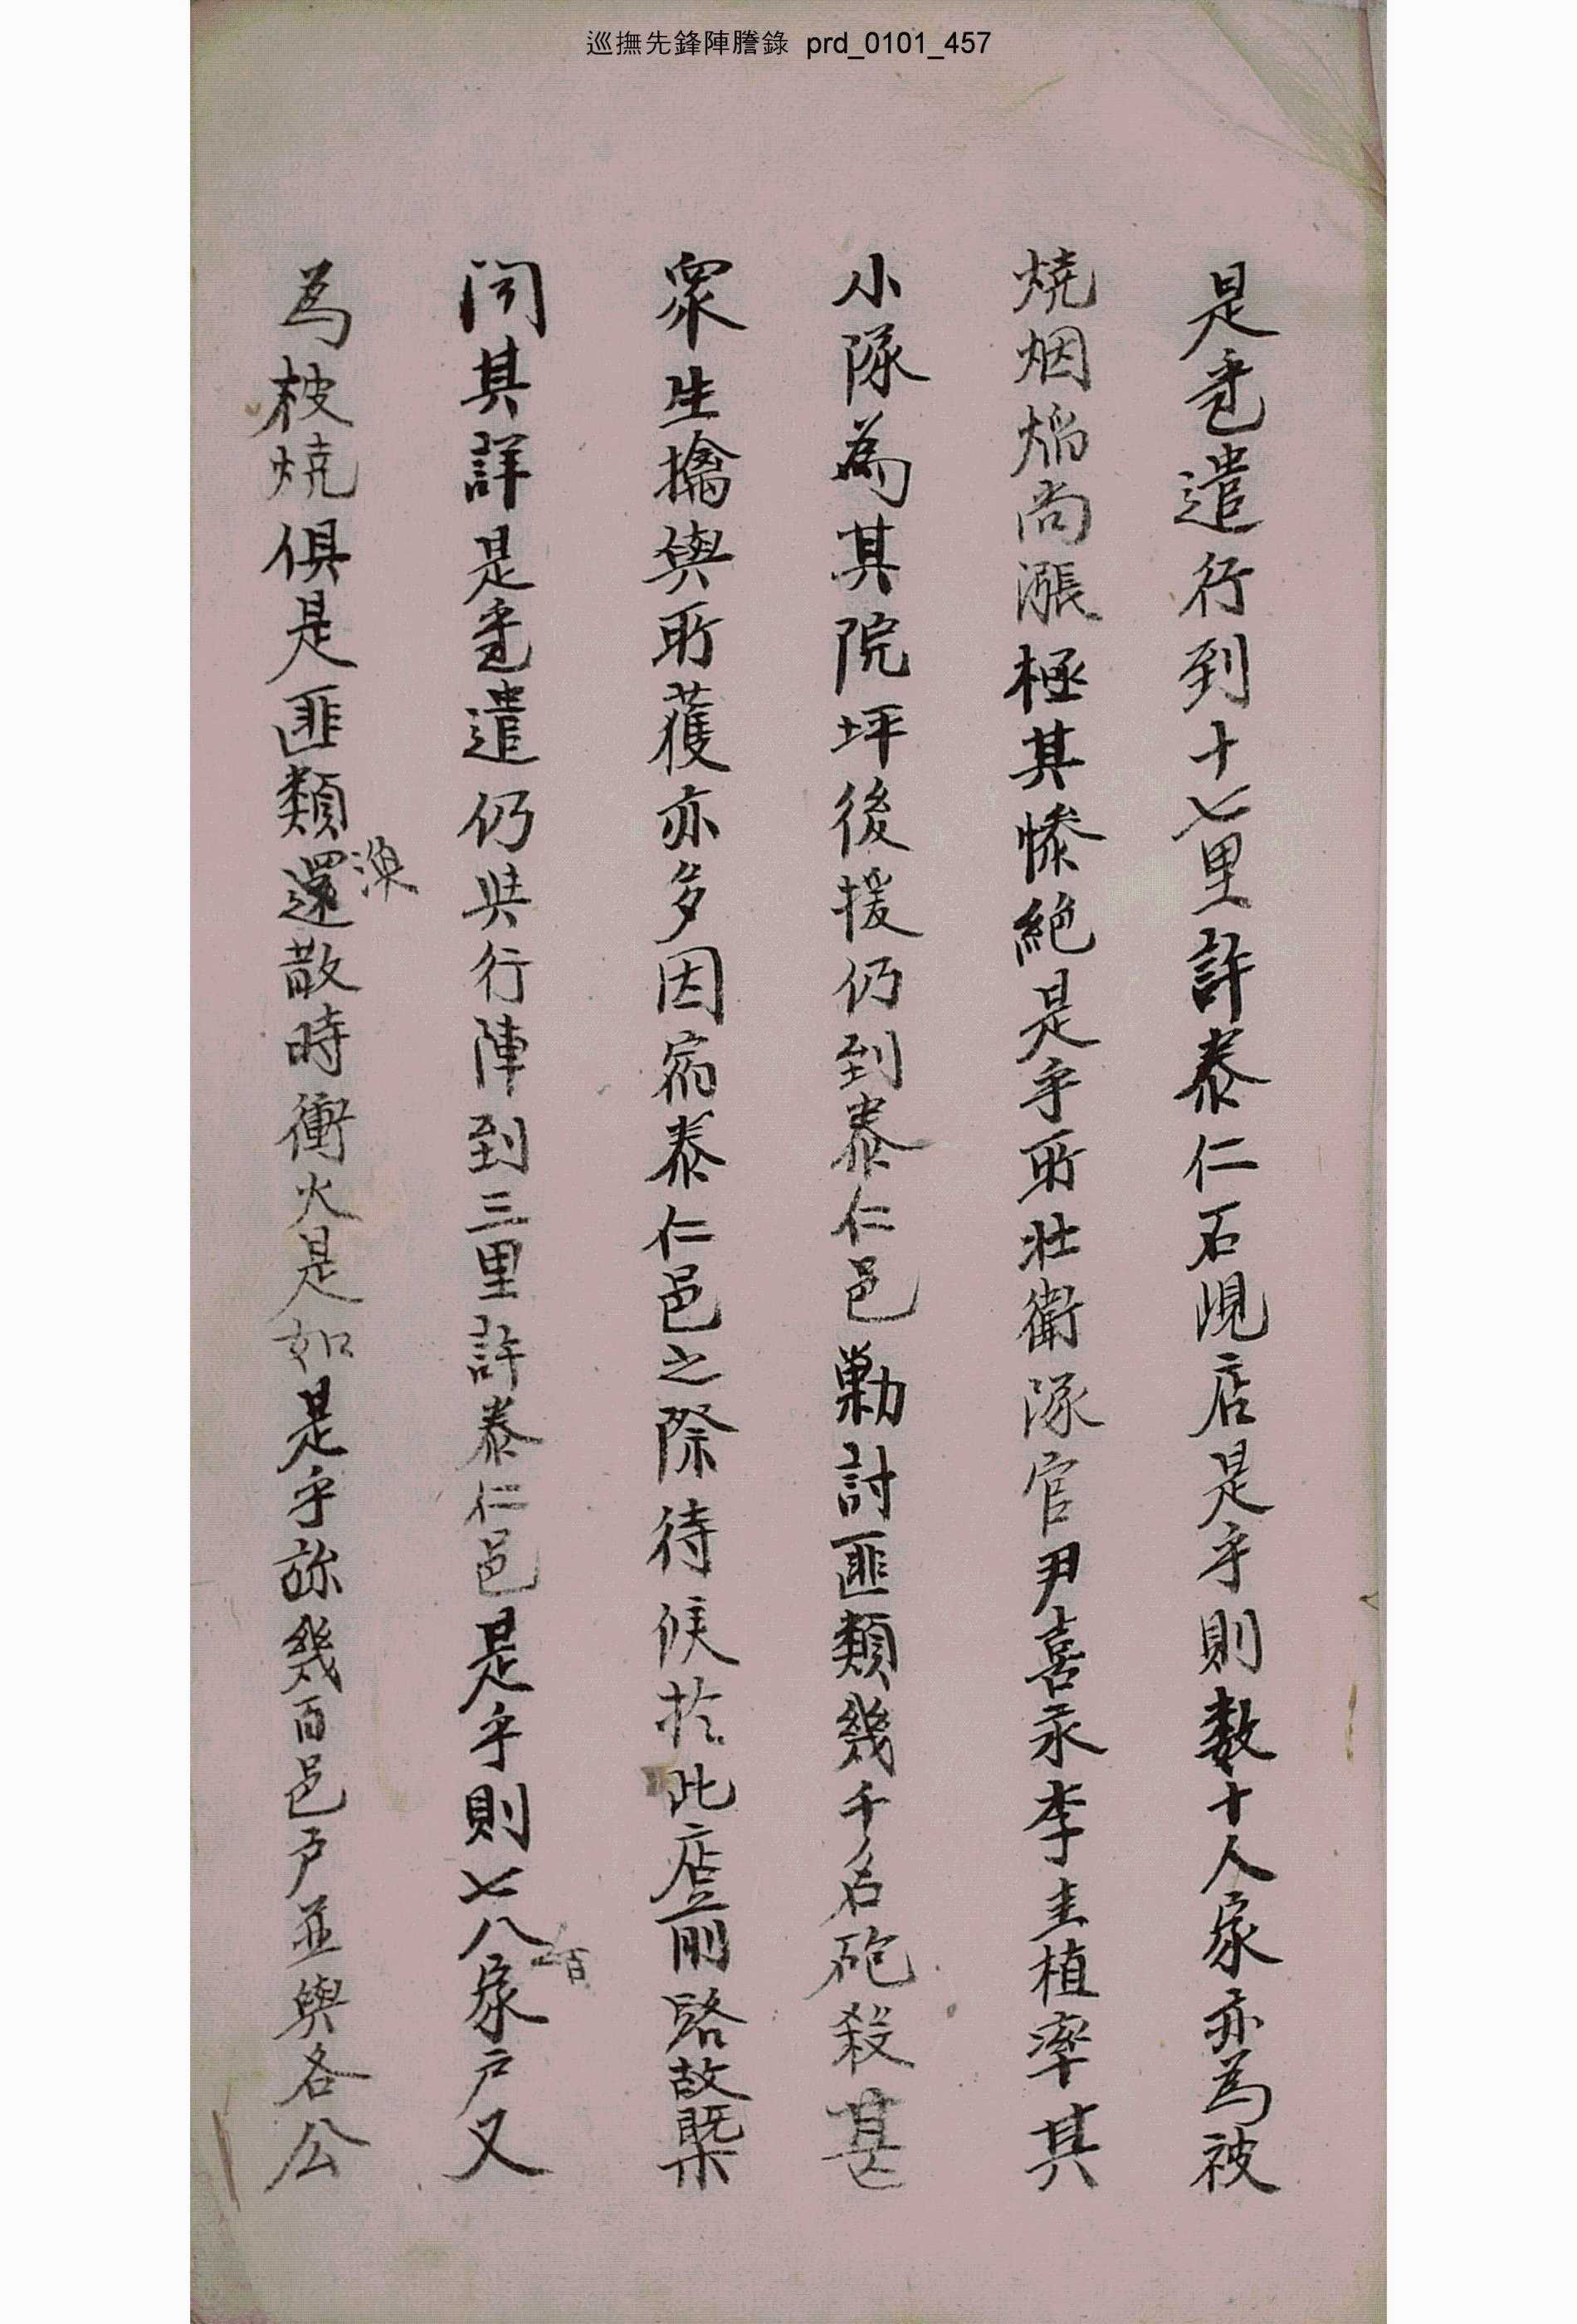 巡撫先鋒陣謄錄 prd_0101_457
是乎遣行到十七里許泰仁石峴店是乎則數十人家亦為被
燒烟焰尚漲極其慘絕是乎所壯衛隊官尹喜永李圭植率其
小隊為其院坪後援仍到泰仁邑勦討匪類幾千名砲殺甚
衆生擒與所獲亦多因宿泰仁邑之際待候於此店前路故槩
问其詳是乎遣仍與行陣到三里許泰仁邑是乎則七八百家戶又
為被燒俱是匪類還渙散時衝火是如是乎旀幾百邑戶並與各公